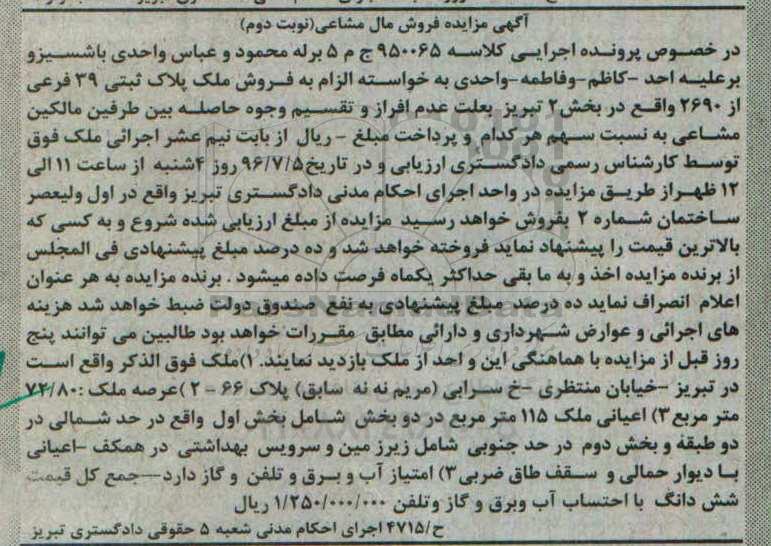 آگهی مزایده فروش مال مشاعی(نوبت دوم)
در خصوص پرونده اجرایی کلاسه ۹۵۰۰۶۵ ج م ۵ برله محمود و عباس واحدی باشسیزو
برعلیه احد -کاظم-وفاطمه-واحدی به خواسته الزام به فروش ملک پلاک ثبتی ۳۹ فرعی
از ۲۶۹۰ واقع در بخش۲ تبریز بعلت عدم افراز و تقسیم وجوه حاصله بین طرفین مالکین
مشاعی به نسبت سهم هر کدام و پرداخت مبلغ - ریال از بابت نیم عشر اجرائی ملک فوق
توسط کارشناس رسمی دادگستری ارزیابی و در تاریخ۹۶/۷/۵ روز ۴شنبه از ساعت ۱۱ الی
۱۲ ظهر از طریق مزایده در واحد اجرای احکام مدنی دادگستری تبریز واقع در اول ولیعصر
ساختمان شماره ۲ بفروش خواهد رسید مزایده از مبلغ ارزیابی شده شروع و به کسی که
بالاترین قیمت را پیشنهاد نماید فروخته خواهد شد و ده درصد مبلغ پیشنهادی فی المجلس
از برنده مزایده اخذ و به ما بقی حداکثر یکماه فرصت داده میشود . برنده مزایده به هر عنوان
اعلام انصراف نماید ده درصد مبلغ پیشنهادی به نفع صندوق دولت ضبط خواهد شد هزینه
های اجرائی و عوارض شهرداری و دارائی مطابق مقررات خواهد بود طالبین می توانند پنج
روز قبل از مزایده با هماهنگی این واحد از ملک بازدید نمایند. ۱)ملک فوق الذکر واقع است
در تبریز -خیابان منتظری -خ سرابی (مریم ننه سابق) پلاک ۶۶ - ۲ )عرصه ملک :۷۲/۸۰
متر مربع ۳) اعیانی ملک ۱۱۵ متر مربع در دو بخش شامل بخش اول واقع در حد شمالی در
دو طبقه و بخش دوم در حد جنوبی شامل زیرزمین و سرویس بهداشتی در همکف -اعیانی
با دیوار حمالی و سقف طاق ضربی ۳) امتیاز آب و برق و تلفن و گاز دارد-جمع کل قیمت
شش دانگ با احتساب آب وبرق و گاز وتلفن ۱/۲۵۰/۰۰۰/۰۰۰ ریال
ح/۴۷۱۵ اجرای احکام مدنی شعبه ۵ حقوقی دادگستری تبریز